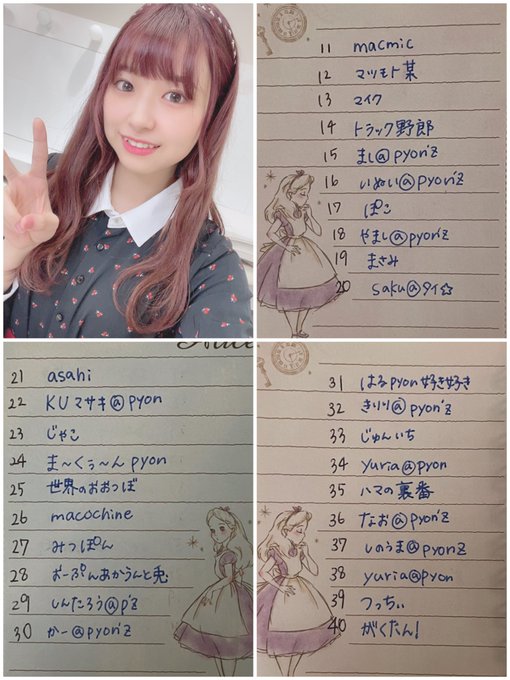 11 macmic
12 マツモト某
13 マイク
14 トラック野郎
15 まし@pyon'z
16 いぬい@pyon'z
17 ぽこ
18 やまし@pyon'z
19 まさみ
20 saku@タイ☆
21 asahi
22 KUマサキ@pyon
23 じゃこ
24 ま〜くぅ〜ん pyon
25 世界のおおつぼ
26 macochine
27 みつぽん
28 おーぷんあかうんと兎
29 しんたろう@p'z
30 かー@pyon'z
31 はるpyon好き好き
32 きりり@pyon'z
33 じゅんいち
34 yuria@pyon
35 ハマの裏番
36 なお@pyon'z
37 しのうま@pyonz
38 yuria@pyon
39 つっちぃ
40 がくたん!